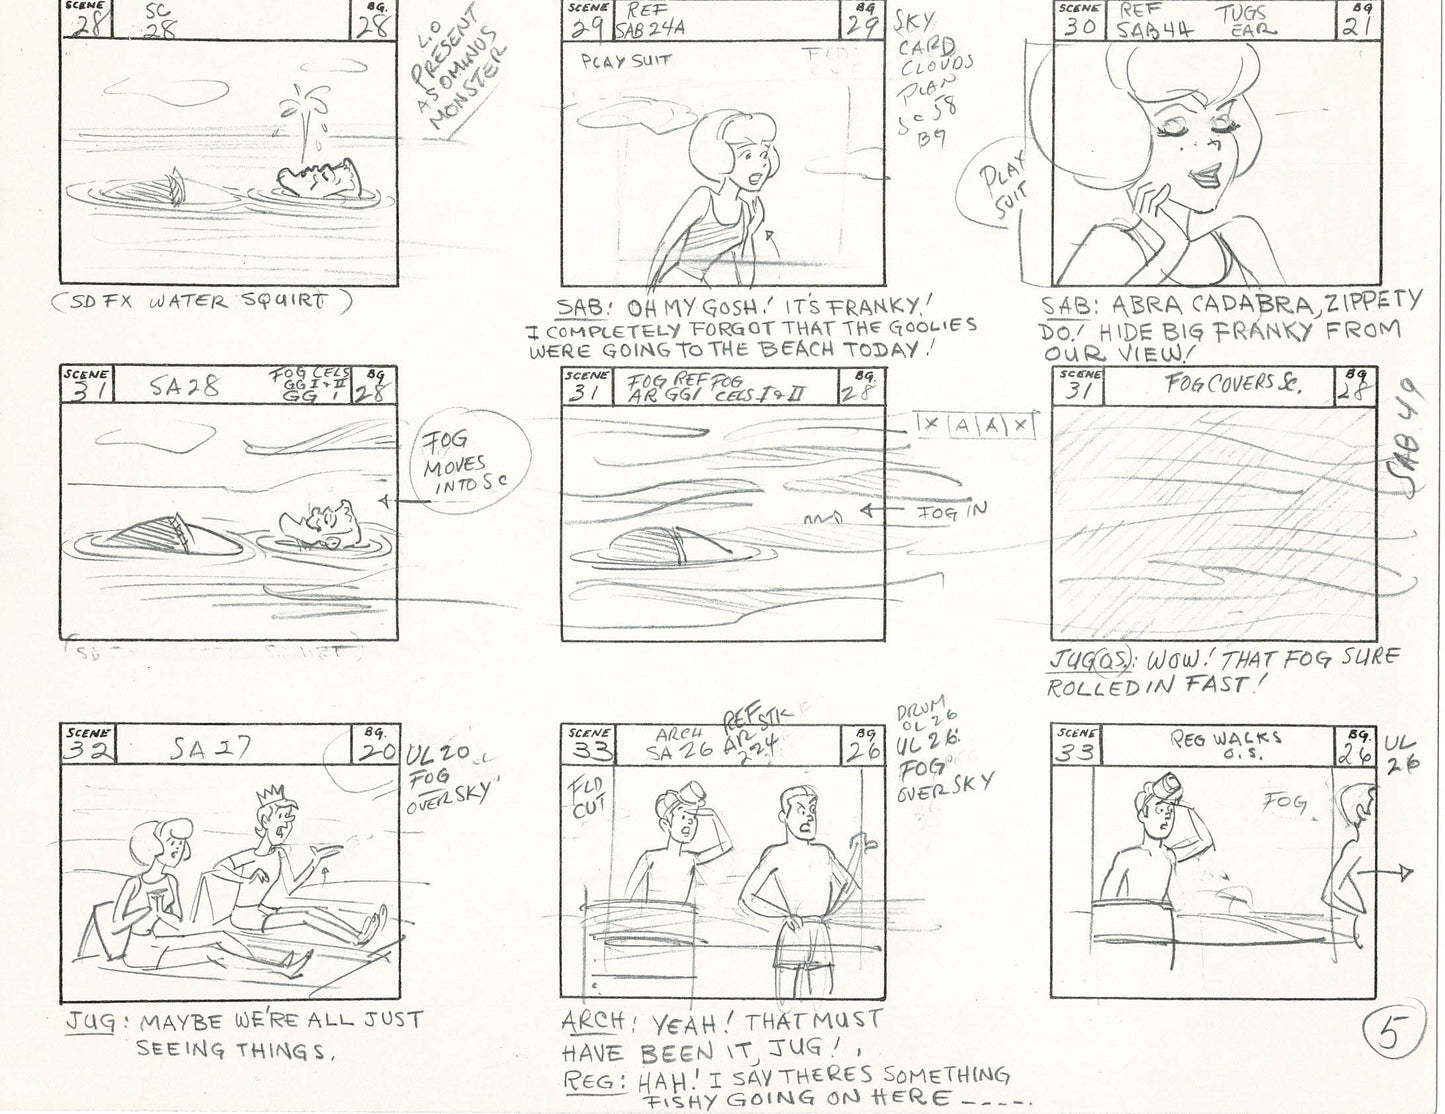 SCENE 28
SC 28
BG. 28
L.O PRESENT
AS OMINUS
MONSTER
(SD FX WATER SQUIRT)
SCENE 29
REF
SAB 24A
BG 29
PLAY SUIT
FLD
SKY
CARD
CLOUDS
PLAN
SC 58
BG
SAB: OH MY GOSH! IT'S FRANKY!
I COMPLETELY FORGOT THAT THE GOOLIES
WERE GOING TO THE BEACH TODAY!
SCENE 30
REF
SAB 44
TUGS
EAR
BG 21
PLAY
SUIT
SAB: ABRA CADABRA, ZIPPETY
DO! HIDE BIG FRANKY FROM
OUR VIEW!
SCENE 31
SA 28
FOG CELS
GG I + II
GG 1
BG. 28
FOG
MOVES
INTO SC
SCENE 31
FOG REF FOG
AR GG1 CELS I + II
BG. 28
X A A X
FOG IN
SCENE 31
FOG COVERS SC.
BG 28
SAB 49
JUG (O.S.): WOW! THAT FOG SURE
ROLLED IN FAST!
SCENE 32
SA 27
BG. 20
UL 20
FOG
OVER SKY
JUG: MAYBE WE'RE ALL JUST
SEEING THINGS.
SCENE 33
ARCH
SA 26
REF
AR
224
BG 26
FLD
CUT
DRUM
OL 26
UL 26
FOG
OVER SKY
ARCH: YEAH! THAT MUST
HAVE BEEN IT, JUG!
REG: HAH! I SAY THERES SOMETHING
FISHY GOING ON HERE -----.
SCENE 33
REG WALKS
O.S.
BG. 26
UL
26
FOG
5